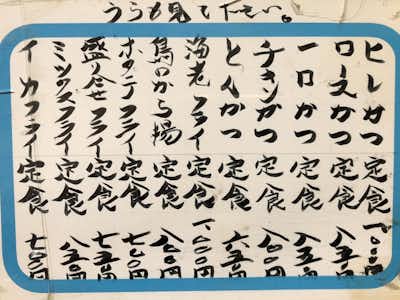 うらも見て下さい。
ヒレかつ定食 一、〇〇〇円
ロースかつ定食 八五〇円
一口かつ定食 八五〇円
チキンかつ定食 八〇〇円
とんかつ定食 六五〇円
海老フライ定食 一、〇〇〇円
鳥のから揚定食 八〇〇円
ホタテフライ定食 七〇〇円
盛り合せフライ定食 七五〇円
ミックスフライ定食 八五〇円
イカフライ定食 七〇〇円